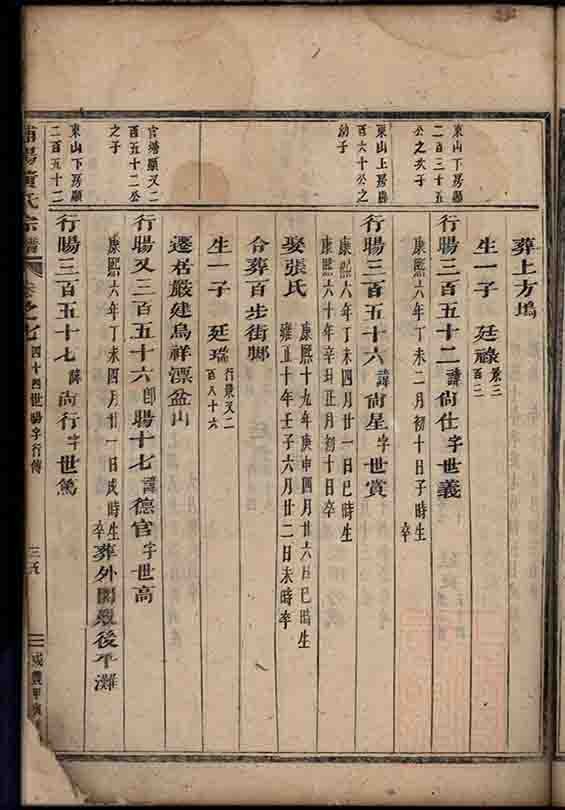 葬上方塢
生一子 廷祿 景三百二
東山下房顯二百三十五公之次子
行賜三百五十二 諱尙仕 字世義
康熙六年丁未二月初十日子時生 卒
東山上房顯百六十公之幼子
行賜三百五十六 諱尙星 字世賞
康熙六年丁未四月廿一日巳時生
康熙六十年辛丑正月初十日卒
娶張氏
康熙十九年庚申四月廿六日巳時生
雍正十年壬子六月廿二日未時卒
合葬百步街鄉
生一子 廷瑞 行景又二百八十六
遷居嚴建烏祥漂盆山
官塘顯又二百五十二公之子
行賜又三百五十六 卽賜十七 諱德官 字世高
康熙六年丁未四月廿一日戌時生 卒 葬外後平灘
東山下房顯二百五十二
行賜三百五十七 諱尙行 字世篤
浦陽黃氏宗譜 卷之七 四十四世賜字行傳 三五 咸豐甲寅